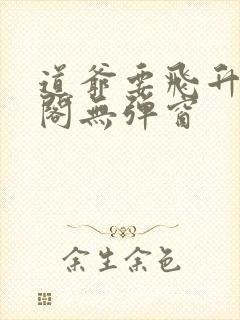 道爺要飛升
閣無彈窗
余生余色